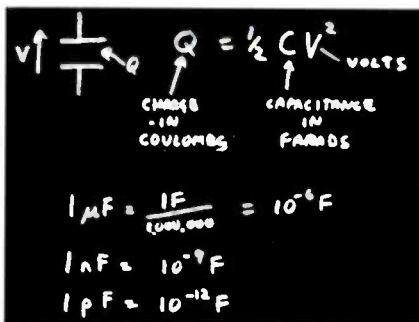 V Q Q = ½ CV² VOLTS
CHARGE IN COULOMBS
CAPACITANCE IN FARADS
1 μF = 1F / 1,000,000 = 10⁻⁶ F
1 nF = 10⁻⁹ F
1 pF = 10⁻¹² F